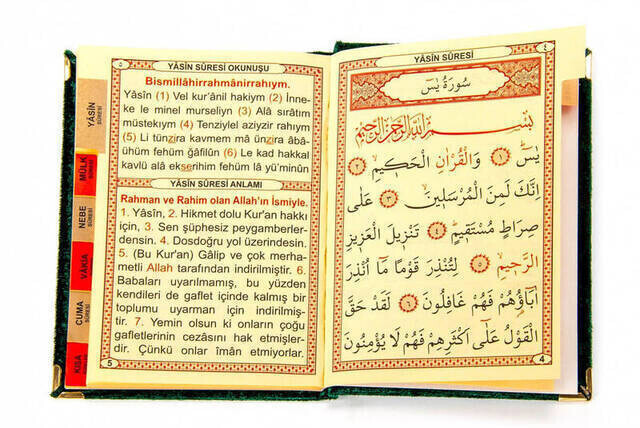 YÂSÎN SÛRESİ
٤
سُورَةُ يٰسٓ
بِسْــــمِ اللّٰهِ الرَّحْمٰنِ الرَّحِيمِ
يٰسٓ ﴿١﴾ وَالْقُرْاٰنِ الْحَكِيمِۙ ﴿٢﴾
اِنَّكَ لَمِنَ الْمُرْسَلِينَۙ ﴿٣﴾ عَلٰى
صِرَاطٍ مُسْتَقِيمٍۜ ﴿٤﴾ تَنْزِيلَ الْعَزِيزِ
الرَّحِيمِۙ ﴿٥﴾ لِتُنْذِرَ قَوْمًا مَٓا اُنْذِرَ
اٰبَٓاؤُهُمْ فَهُمْ غَافِلُونَ ﴿٦﴾ لَقَدْ حَقَّ
الْقَوْلُ عَلٰٓى اَكْثَرِهِمْ فَهُمْ لَا يُؤْمِنُونَ
4
٥
YÂSÎN SÛRESİ OKUNUŞU
Bismillâhirrahmânirrahıym.
Yâsîn (1) Vel kur'ânil hakiym (2) İnne-
ke le minel murseliyn (3) Alâ sırâtım
müstekıym (4) Tenziylel aziyzir rahıym
(5) Li tünzira kavmem mâ ünzira âbâ-
ühüm fehüm ğâfilûn (6) Le kad hakkal
kavlü alâ ekserihim fehüm lâ yü'minûn
YÂSÎN SÛRESİ ANLAMI
Rahman ve Rahim olan Allah'ın İsmiyle.
1. Yâsîn, 2. Hikmet dolu Kur'an hakkı
için, 3. Sen şüphesiz peygamberler-
densin. 4. Dosdoğru yol üzerindesin.
5. (Bu Kur'an) Gâlip ve çok merha-
metli Allah tarafından indirilmiştir. 6.
Babaları uyarılmamış, bu yüzden
kendileri de gaflet içinde kalmış bir
toplumu uyarman için indirilmiş-
tir. 7. Yemin olsun ki onların çoğu
gafletlerinin cezasını hak etmişler-
dir. Çünkü onlar îmân etmiyorlar.
5
YÂSÎN
SÛRESİ
MÜLK
SÛRESİ
NEBE
SÛRESİ
VÂKIA
CUMA
SÛRESİ
KISA